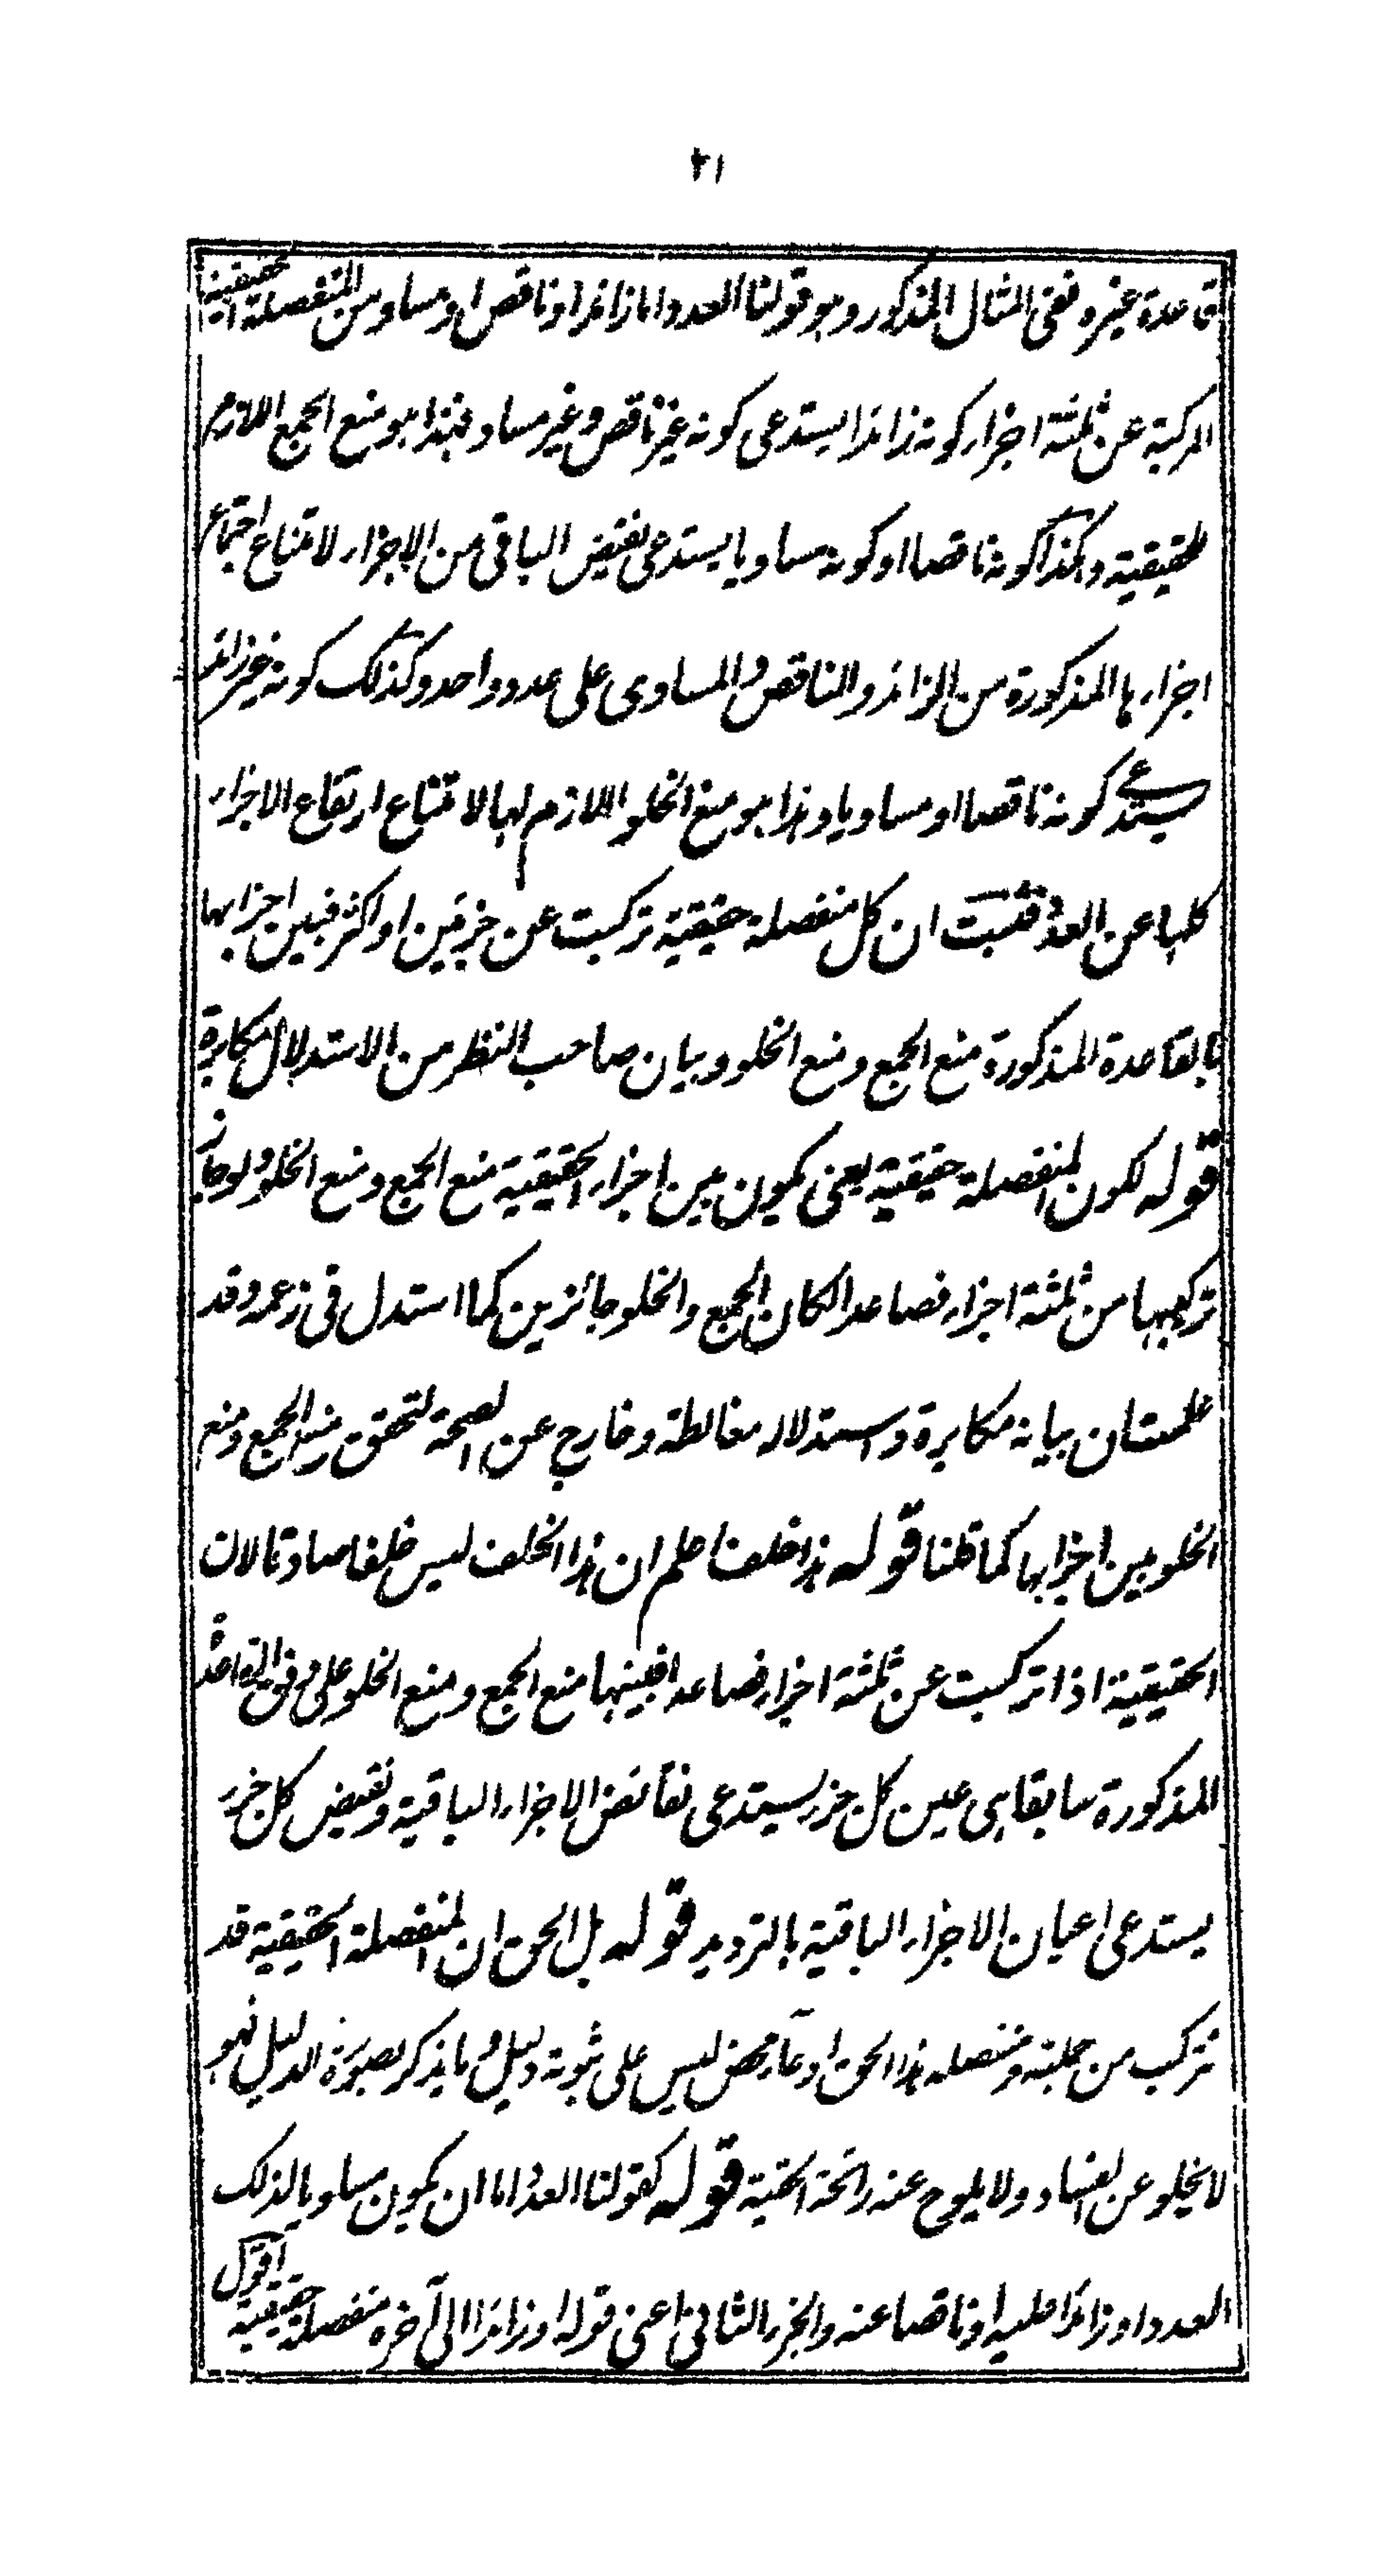 ٢١
قاعدة غيره ففي المثال المذكور وهو قولنا العدد اما زائد او ناقص او مساو من المنفصلة الحقيقية
المركبة عن ثلثة اجزاء كونه زائدا يستدعى كونه غير ناقص وغير مساو فهذا هو منع الجمع اللازم
للحقيقية وهكذا كونه ناقصا او كونه مساويا يستدعى نقيض الباقى من الاجزاء لامتناع اجتماع
اجزاءها المذكورة من الزائد والناقص والمساوى على عدد واحد وكذلك كونه غير زائد
يستدعى كونه ناقصا او مساويا وهذا هو منع الخلو اللازم لها لامتناع ارتفاع الاجزاء
كلها عن العدد فثبت ان كل منفصلة حقيقية تركبت عن جزئين او اكثر فبين اجزاءها
بالقاعدة المذكورة منع الجمع ومنع الخلو وبيان صاحب النظر من الاستدلال مكابرة
قوله لكون المنفصلة حقيقية يعنى يكون بين اجزاء الحقيقية منع الجمع ومنع الخلو ولو جاز
تركيبها من ثلثة اجزاء فصاعدا لكان الجمع والخلو جائزين كما استدل فى زعمه وقد
علمت ان بيانه مكابرة واستدلاله مغالطة وخارج عن الصحة لتحقق منع الجمع ومنع
الخلو بين اجزاءها كما قلنا قوله هذا خلف اعلم ان هذا الخلف ليس خلفا صادقا لان
الحقيقية اذا تركبت عن ثلثة اجزاء فصاعدا فبينها منع الجمع ومنع الخلو على وفق القاعدة
المذكورة سابقا هى عين كل جزء يستدعى نقائض الاجزاء الباقية ونقيض كل جزء
يستدعى اعيان الاجزاء الباقية بالترديد قوله بل الحق ان المنفصلة الحقيقية قد
تتركب من حملية ومنفصلة هذا الحق ادعاء محض ليس على ثبوته دليل وما يذكر بصورة الدليل فهو
لا يخلو عن الفساد ولا يلوح عنه رائحة الحقية قوله كقولنا العدد اما ان يكون مساويا لذلك
العدد او زائدا عليه او ناقصا عنه والجزء الثانى اعنى قوله او زائدا الى آخره منفصلة حقيقية اقول